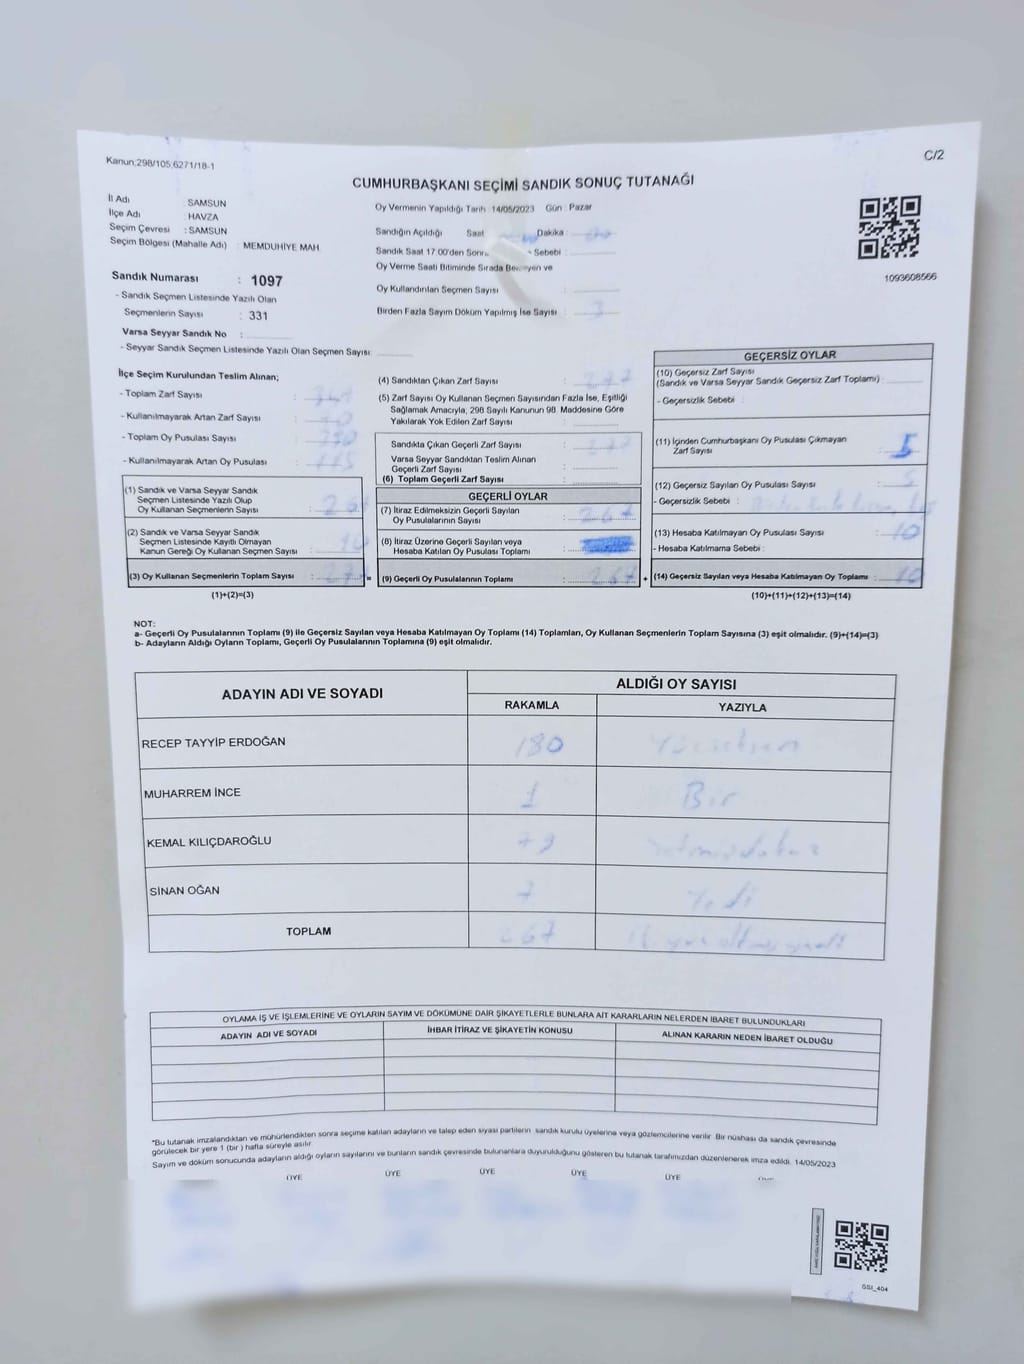 Kanun:298/105,6271/18-1
C/2
CUMHURBAŞKANI SEÇİMİ SANDIK SONUÇ TUTANAĞI
İl Adı : SAMSUN
İlçe Adı : HAVZA
Seçim Çevresi : SAMSUN
Seçim Bölgesi (Mahalle Adı) : MEMDUHİYE MAH.
Oy Vermenin Yapıldığı Tarih : 14/05/2023 Gün : Pazar
Sandığın Açıldığı Saat Dakika :
Sandık Saat 17.00'den Sebebi :
Oy Verme Saati Bitiminde Sırada ve
Oy Kullandırılan Seçmen Sayısı :
Birden Fazla Sayım Döküm Yapılmış İse Sayısı : 3
1093608566
Sandık Numarası : 1097
- Sandık Seçmen Listesinde Yazılı Olan
Seçmenlerin Sayısı : 331
Varsa Seyyar Sandık No :
- Seyyar Sandık Seçmen Listesinde Yazılı Olan Seçmen Sayısı:
İlçe Seçim Kurulundan Teslim Alınan;
- Toplam Zarf Sayısı :
- Kullanılmayarak Artan Zarf Sayısı :
- Toplam Oy Pusulası Sayısı :
- Kullanılmayarak Artan Oy Pusulası :
(1) Sandık ve Varsa Seyyar Sandık
Seçmen Listesinde Yazılı Olup
Oy Kullanan Seçmenlerin Sayısı : 267
(2) Sandık ve Varsa Seyyar Sandık
Seçmen Listesinde Kayıtlı Olmayan
Kanun Gereği Oy Kullanan Seçmen Sayısı : 10
(3) Oy Kullanan Seçmenlerin Toplam Sayısı : 277 =
(1)+(2)=(3)
(4) Sandıktan Çıkan Zarf Sayısı : 277
(5) Zarf Sayısı Oy Kullanan Seçmen Sayısından Fazla İse, Eşitliği
Sağlamak Amacıyla, 298 Sayılı Kanunun 98. Maddesine Göre
Yakılarak Yok Edilen Zarf Sayısı :
Sandıkta Çıkan Geçerli Zarf Sayısı :
Varsa Seyyar Sandıktan Teslim Alınan
Geçerli Zarf Sayısı :
(6) Toplam Geçerli Zarf Sayısı :
GEÇERLİ OYLAR
(7) İtiraz Edilmeksizin Geçerli Sayılan
Oy Pusulalarının Sayısı : 267
(8) İtiraz Üzerine Geçerli Sayılan veya
Hesaba Katılan Oy Pusulası Toplamı :
(9) Geçerli Oy Pusulalarının Toplamı : 267 +
GEÇERSİZ OYLAR
(10) Geçersiz Zarf Sayısı
(Sandık ve Varsa Seyyar Sandık Geçersiz Zarf Toplamı) :
- Geçersizlik Sebebi :
(11) İçinden Cumhurbaşkanı Oy Pusulası Çıkmayan
Zarf Sayısı : 5
(12) Geçersiz Sayılan Oy Pusulası Sayısı : 5
- Geçersizlik Sebebi :
(13) Hesaba Katılmayan Oy Pusulası Sayısı : 10
- Hesaba Katılmama Sebebi :
(14) Geçersiz Sayılan veya Hesaba Katılmayan Oy Toplamı : 10
(10)+(11)+(12)+(13)=(14)
NOT:
a- Geçerli Oy Pusulalarının Toplamı (9) ile Geçersiz Sayılan veya Hesaba Katılmayan Oy Toplamı (14) Toplamları, Oy Kullanan Seçmenlerin Toplam Sayısına (3) eşit olmalıdır. (9)+(14)=(3)
b- Adayların Aldığı Oyların Toplamı, Geçerli Oy Pusulalarının Toplamına (9) eşit olmalıdır.
ADAYIN ADI VE SOYADI
ALDIĞI OY SAYISI
RAKAMLA YAZIYLA
RECEP TAYYİP ERDOĞAN 180 Yüzseksen
MUHARREM İNCE 1 Bir
KEMAL KILIÇDAROĞLU 79 Yetmişdokuz
SİNAN OĞAN 7 Yedi
TOPLAM 267 İki yüz altmış yedi
OYLAMA İŞ VE İŞLEMLERİNE VE OYLARIN SAYIM VE DÖKÜMÜNE DAİR ŞİKAYETLERLE BUNLARA AİT KARARLARIN NELERDEN İBARET BULUNDUKLARI
ADAYIN ADI VE SOYADI İHBAR İTİRAZ VE ŞİKAYETİN KONUSU ALINAN KARARIN NEDEN İBARET OLDUĞU
*Bu tutanak imzalandıktan ve mühürlendikten sonra seçime katılan adayların ve talep eden siyasi partilerin sandık kurulu üyelerine veya gözlemcilerine verilir. Bir nüshası da sandık çevresinde
görülecek bir yere 1 (bir) hafta süreyle asılır.
Sayım ve döküm sonucunda adayların aldığı oyların sayılarını ve bunların sandık çevresinde bulunanlara duyurulduğunu gösteren bu tutanak tarafımızdan düzenlenerek imza edildi. 14/05/2023
ÜYE ÜYE ÜYE ÜYE ÜYE
GSI_404